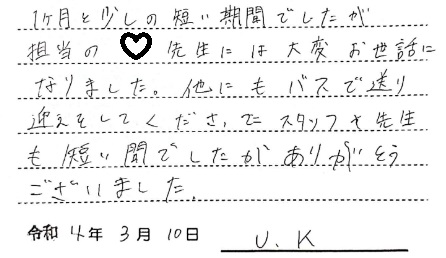 1ヶ月と少しの短い期間でしたが
担当の ♡ 先生には大変お世話に
なりました。他にもバスで送り
迎えをしてくださってスタッフや先生
も短い間でしたがありがとう
ございました。
令和 4年 3月 10日 U.K